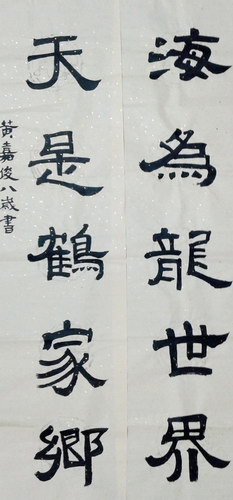 海為龍世界
天是鶴家鄉
黄嘉俊八歲書